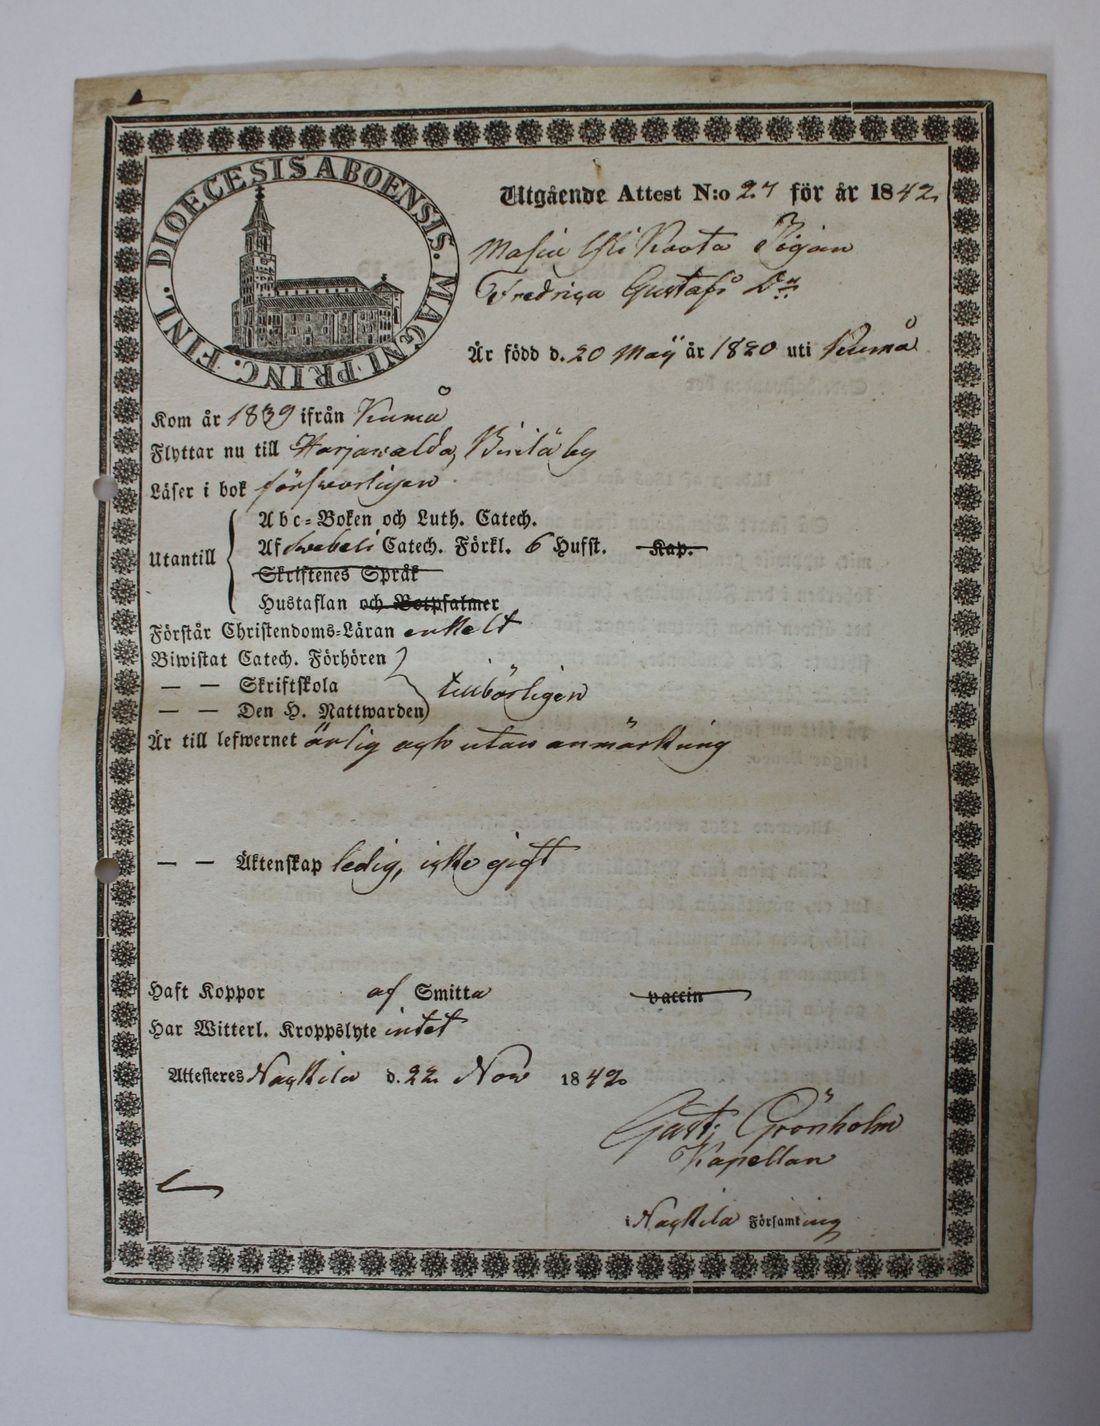 DIOECESIS ABOENSIS. MAGNI PRINC. FINL.
Utgående Attest N:o 27 för år 1842
Pigan
Fredrica Gustafs Dr
Är född d. 20 Maÿ år 1820 uti Kumå
Kom år 1839 ifrån Kumå
Flyttar nu till Harjawalda, by
Läser i bok förswarligen
Utantill
Abc-Boken och Luth. Catech.
Af Swebeli Catech. Förkl. 6 Hufst. Kap.
Skriftenes Språk
Hustaflan och Botpsalmer
Förstår Christendoms-Läran enkelt
Biwistat Catech. Förhören
— — Skriftskola
— — Den H. Nattwarden
tillbörligen
Är till lefwernet ärlig och utan anmärkning
— — Äktenskap ledig, icke gift
Haft Koppor af Smitta vaccin
Har Witterl. Kroppslyte intet
Attesteres Nackila d. 22 Nov 1842
Gust: Grönholm
Kapellan
i Nackila Församling